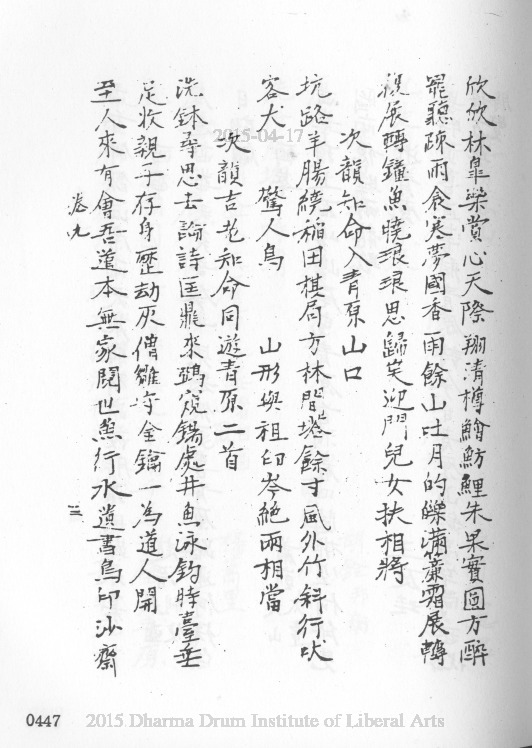 欣欣林皐樂賞心天際翔清樽鱠魴鯉朱果實圓方醉
罷聽疎雨食寒夢國香雨餘山吐月的皪滿簾霜展轉
復展轉鐘魚曉琅琅思歸笑迎門兒女扶相將
次韻知命入青原山口
坑路羊腸繞稻田棋局方林間塔餘寸風外竹斜行吠
客犬 驚人鳥 山形與祖印岑絕兩相當
次韻吉老知命同遊青原二首
洗鉢尋思去論詩匡鼎來鵶窺錫處井魚泳釣時臺垂
足收親子存身歷劫灰僧雛守金鑰一為道人開
至人來有會吾道本無家閱世魚行水遺書鳥印沙齋
卷九 三
0447
2015 Dharma Drum Institute of Liberal Arts
2015-04-17